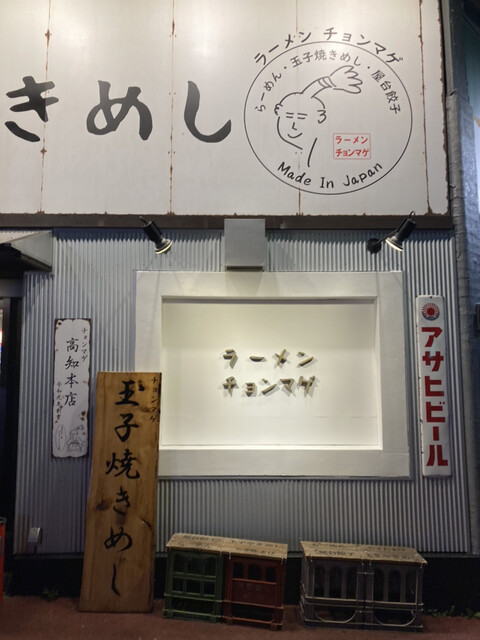 きめし
ラーメン チョンマゲ
らーめん・玉子焼きめし・屋台餃子
ラーメン
チョンマゲ
Made In Japan
ラーメン
チョンマゲ
チョンマゲ
高知本店
チョンマゲ
玉子焼きめし
アサヒビール